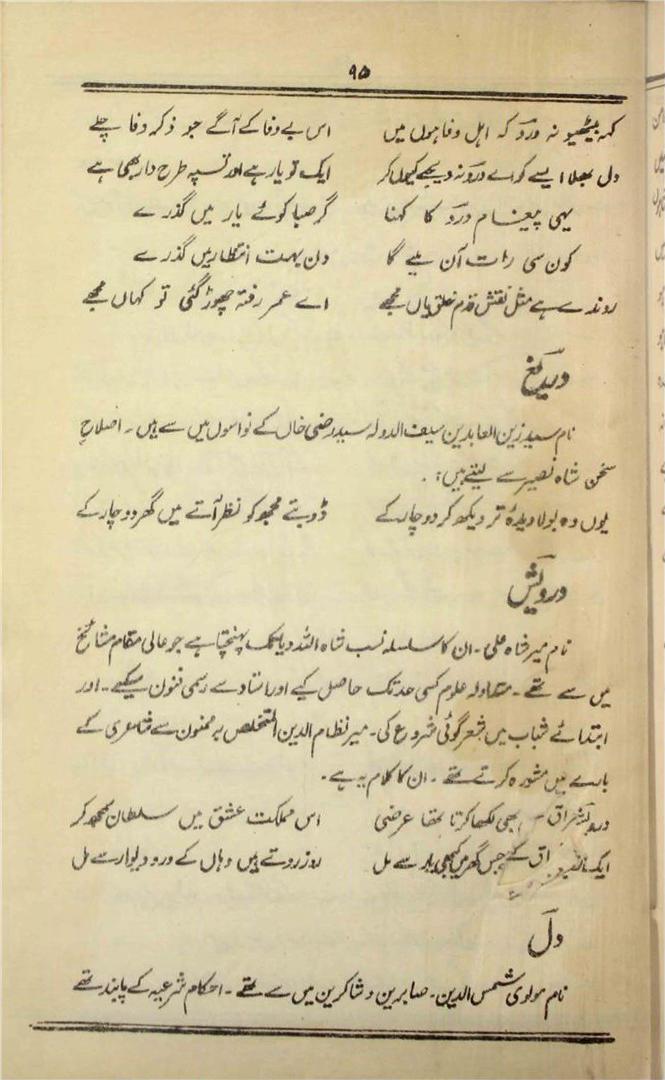 ۹۵
کہہ بیٹھیو نہ درؔد کہ اہل وفا ہوں میں اس بے وفا کے آگے جو ذکر وفا چلے
دل بھلا ایسے کو اے درؔد نہ دیجے کیوں کر ایک تو یار ہے اور تسپہ طرح دار بھی ہے
یہی پیغام درؔد کا کہنا گر صبا کوئے یار میں گذرے
کون سی رات آن ملیے گا دن بہت انتظار میں گذرے
روندے ہے مثل نقش قدم خلق یاں مجھے اے عمر رفتہ چھوڑ گئی تو کہاں مجھے
دریغؔ
نام سید زین العابدین سیف الدولہ سید رضی خاں کے نواسوں میں سے ہیں ۔ اصلاح
سخن شاہ نصیر سے لیتے ہیں :۔
یوں وہ بولا دیدۂ تر دیکھ کر دو چار کے ڈوبتے مجھ کو نظر آتے ہیں گھر دو چار کے
درویشؔ
نام میر شاہ علی ۔ ان کا سلسلہ نسب شاہ اللہ دیا تک پہنچتا ہے جو عالی مقام مشائخ
میں سے تھے ۔ متداولہ علوم کسی حد تک حاصل کیے اور استاد سے رسمی فنون سیکھے ۔ اور
ابتدائے شباب میں شعر گوئی شروع کی ۔ میر نظام الدین المتخلص بر ممنون سے شاعری کے
بارے میں مشورہ کرتے تھے ۔ ان کا کلام یہ ہے ۔
بھی لکھا کرتا تھا عرضی اس مملکت عشق میں سلطان سمجھ کر
ایک جس گھر میں کبھی یار سے مل روز روتے ہیں وہاں کے در و دیوار سے مل
دلؔ
نام مولوی شمس الدین ۔ صابرین و شاکرین میں سے تھے ۔ احکام شرعیہ کے پابند تھے